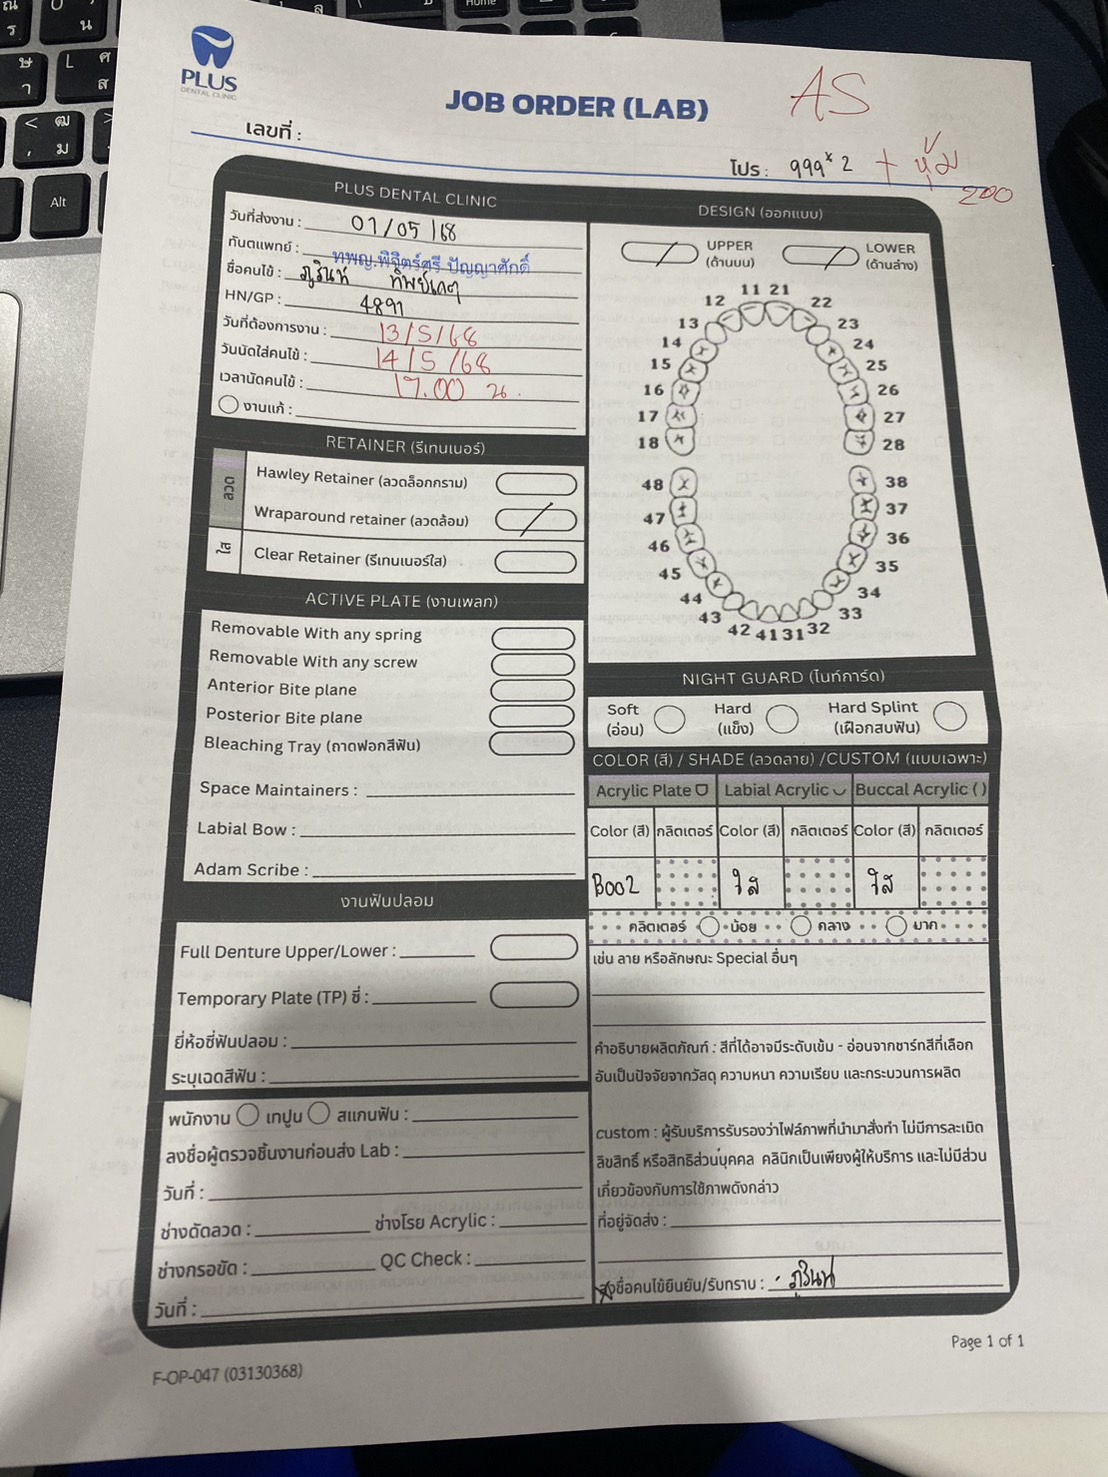 PLUS
DENTAL CLINIC
JOB ORDER (LAB)
AS
เลขที่ :
โปร : 999 x 2 + หุ้ม 200
PLUS DENTAL CLINIC
วันที่ส่งงาน : 07/05/68
ทันตแพทย์ : ทพญ.พิจิตร์ศรี ปัญญาศักดิ์
ชื่อคนไข้ : ภูรินท์
HN/GP : 4891
วันที่ต้องการงาน : 13/5/68
วันนัดใส่คนไข้ : 14/5/68
เวลานัดคนไข้ : 17.00 น.
งานแก้ :
DESIGN (ออกแบบ)
UPPER
(ด้านบน)
LOWER
(ด้านล่าง)
11 21
12 22
13 23
14 24
15 25
16 26
17 27
18 28
48 38
47 37
46 36
45 35
44 34
43 33
42 41 31 32
RETAINER (รีเทนเนอร์)
ลวด
Hawley Retainer (ลวดล็อกกราม)
Wraparound retainer (ลวดล้อม)
ใส
Clear Retainer (รีเทนเนอร์ใส)
ACTIVE PLATE (งานเพลท)
Removable With any spring
Removable With any screw
Anterior Bite plane
Posterior Bite plane
Bleaching Tray (ถาดฟอกสีฟัน)
Space Maintainers :
Labial Bow :
Adam Scribe :
งานฟันปลอม
Full Denture Upper/Lower :
Temporary Plate (TP) ซี่ :
ยี่ห้อซี่ฟันปลอม :
ระบุเฉดสีฟัน :
พนักงาน เทปูน สแกนฟัน :
ลงชื่อผู้ตรวจชิ้นงานก่อนส่ง Lab :
วันที่ :
ช่างดัดลวด : ช่างโรย Acrylic :
ช่างกรอขัด : QC Check :
วันที่ :
NIGHT GUARD (ไนท์การ์ด)
Soft
(อ่อน)
Hard
(แข็ง)
Hard Splint
(เฝือกสบฟัน)
COLOR (สี) / SHADE (ลวดลาย) /CUSTOM (แบบเฉพาะ)
Acrylic Plate Labial Acrylic Buccal Acrylic ( )
Color (สี) กลิตเตอร์ Color (สี) กลิตเตอร์ Color (สี) กลิตเตอร์
B002 ใส ใส
กลิตเตอร์ น้อย กลาง มาก
เช่น ลาย หรือลักษณะ Special อื่นๆ
คำอธิบายผลิตภัณฑ์ : สีที่ได้อาจมีระดับเข้ม - อ่อนจากชาร์ทสีที่เลือก
อันเป็นปัจจัยจากวัสดุ ความหนา ความเรียบ และกระบวนการผลิต
custom : ผู้รับบริการรับรองว่าไฟล์ภาพที่นำมาสั่งทำ ไม่มีการละเมิด
ลิขสิทธิ์ หรือสิทธิส่วนบุคคล คลินิกเป็นเพียงผู้ให้บริการ และไม่มีส่วน
เกี่ยวข้องกับการใช้ภาพดังกล่าว
ที่อยู่จัดส่ง :
ลงชื่อคนไข้ยืนยัน/รับทราบ : ภูรินท์
Page 1 of 1
F-OP-047 (03130368)